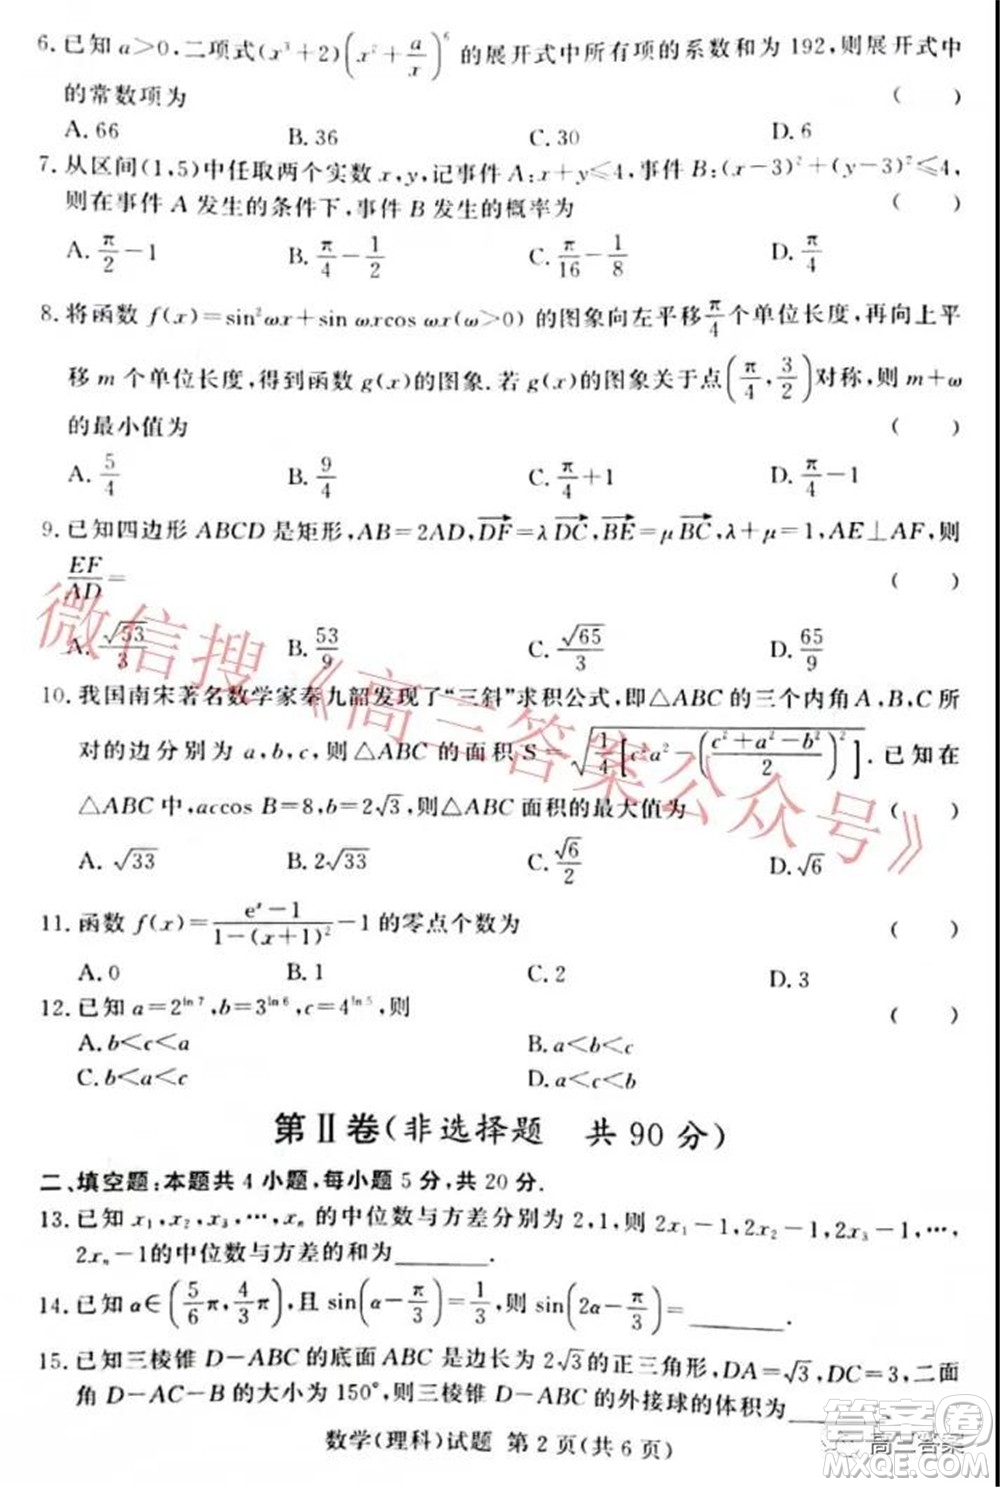 6.已知 a>0,二项式(x³+2)(x²+a/x)⁶ 的展开式中所有项的系数和为 192,则展开式中
的常数项为 (  )
A. 66 B. 36 C. 30 D. 6
7.从区间(1,5)中任取两个实数 x,y,记事件 A:x+y≤4,事件 B:(x-3)²+(y-3)²≤4,
则在事件 A 发生的条件下,事件 B 发生的概率为 (  )
A. π/2-1 B. π/4-1/2 C. π/16-1/8 D. π/4
8.将函数 f(x)=sin²ωx+sin ωxcos ωx(ω>0) 的图象向左平移 π/4 个单位长度,再向上平
移 m 个单位长度,得到函数 g(x)的图象.若 g(x)的图象关于点(π/4,3/2)对称,则 m+ω
的最小值为 (  )
A. 5/4 B. 9/4 C. π/4+1 D. π/4-1
9.已知四边形 ABCD 是矩形,AB=2AD,DF→=λ DC→,BE→=μ BC→,λ+μ=1,AE⊥AF,则
EF/AD= (  )
A. √53/3 B. 53/9 C. √65/3 D. 65/9
10.我国南宋著名数学家秦九韶发现了“三斜”求积公式,即△ABC 的三个内角 A,B,C 所
对的边分别为 a,b,c,则△ABC 的面积 S=√(1/4[c²a²-((c²+a²-b²)/2)²]).已知在
△ABC 中,accos B=8,b=2√3,则△ABC 面积的最大值为 (  )
A. √33 B. 2√33 C. √6/2 D. √6
11.函数 f(x)=(eˣ-1)/(1-(x+1)²)-1 的零点个数为 (  )
A. 0 B. 1 C. 2 D. 3
12.已知 a=2^(ln 7),b=3^(ln 6),c=4^(ln 5),则 (  )
A. b<c<a B. a<b<c
C. b<a<c D. a<c<b
第Ⅱ卷(非选择题 共 90 分)
二、填空题:本题共 4 小题,每小题 5 分,共 20 分.
13.已知 x₁,x₂,x₃,…,xₙ 的中位数与方差分别为 2,1,则 2x₁-1,2x₂-1,2x₃-1,…,
2xₙ-1的中位数与方差的和为________.
14.已知 α∈(5/6π,4/3π),且 sin(α-π/3)=1/3,则 sin(2α-π/3)=________.
15.已知三棱锥 D-ABC 的底面 ABC 是边长为 2√3的正三角形,DA=√3,DC=3,二面
角 D-AC-B 的大小为 150°,则三棱锥 D-ABC 的外接球的体积为________
数学(理科)试题 第 2 页(共 6 页)
微信搜《高三答案公众号》
答案圈
高三答案
MXQE.COM